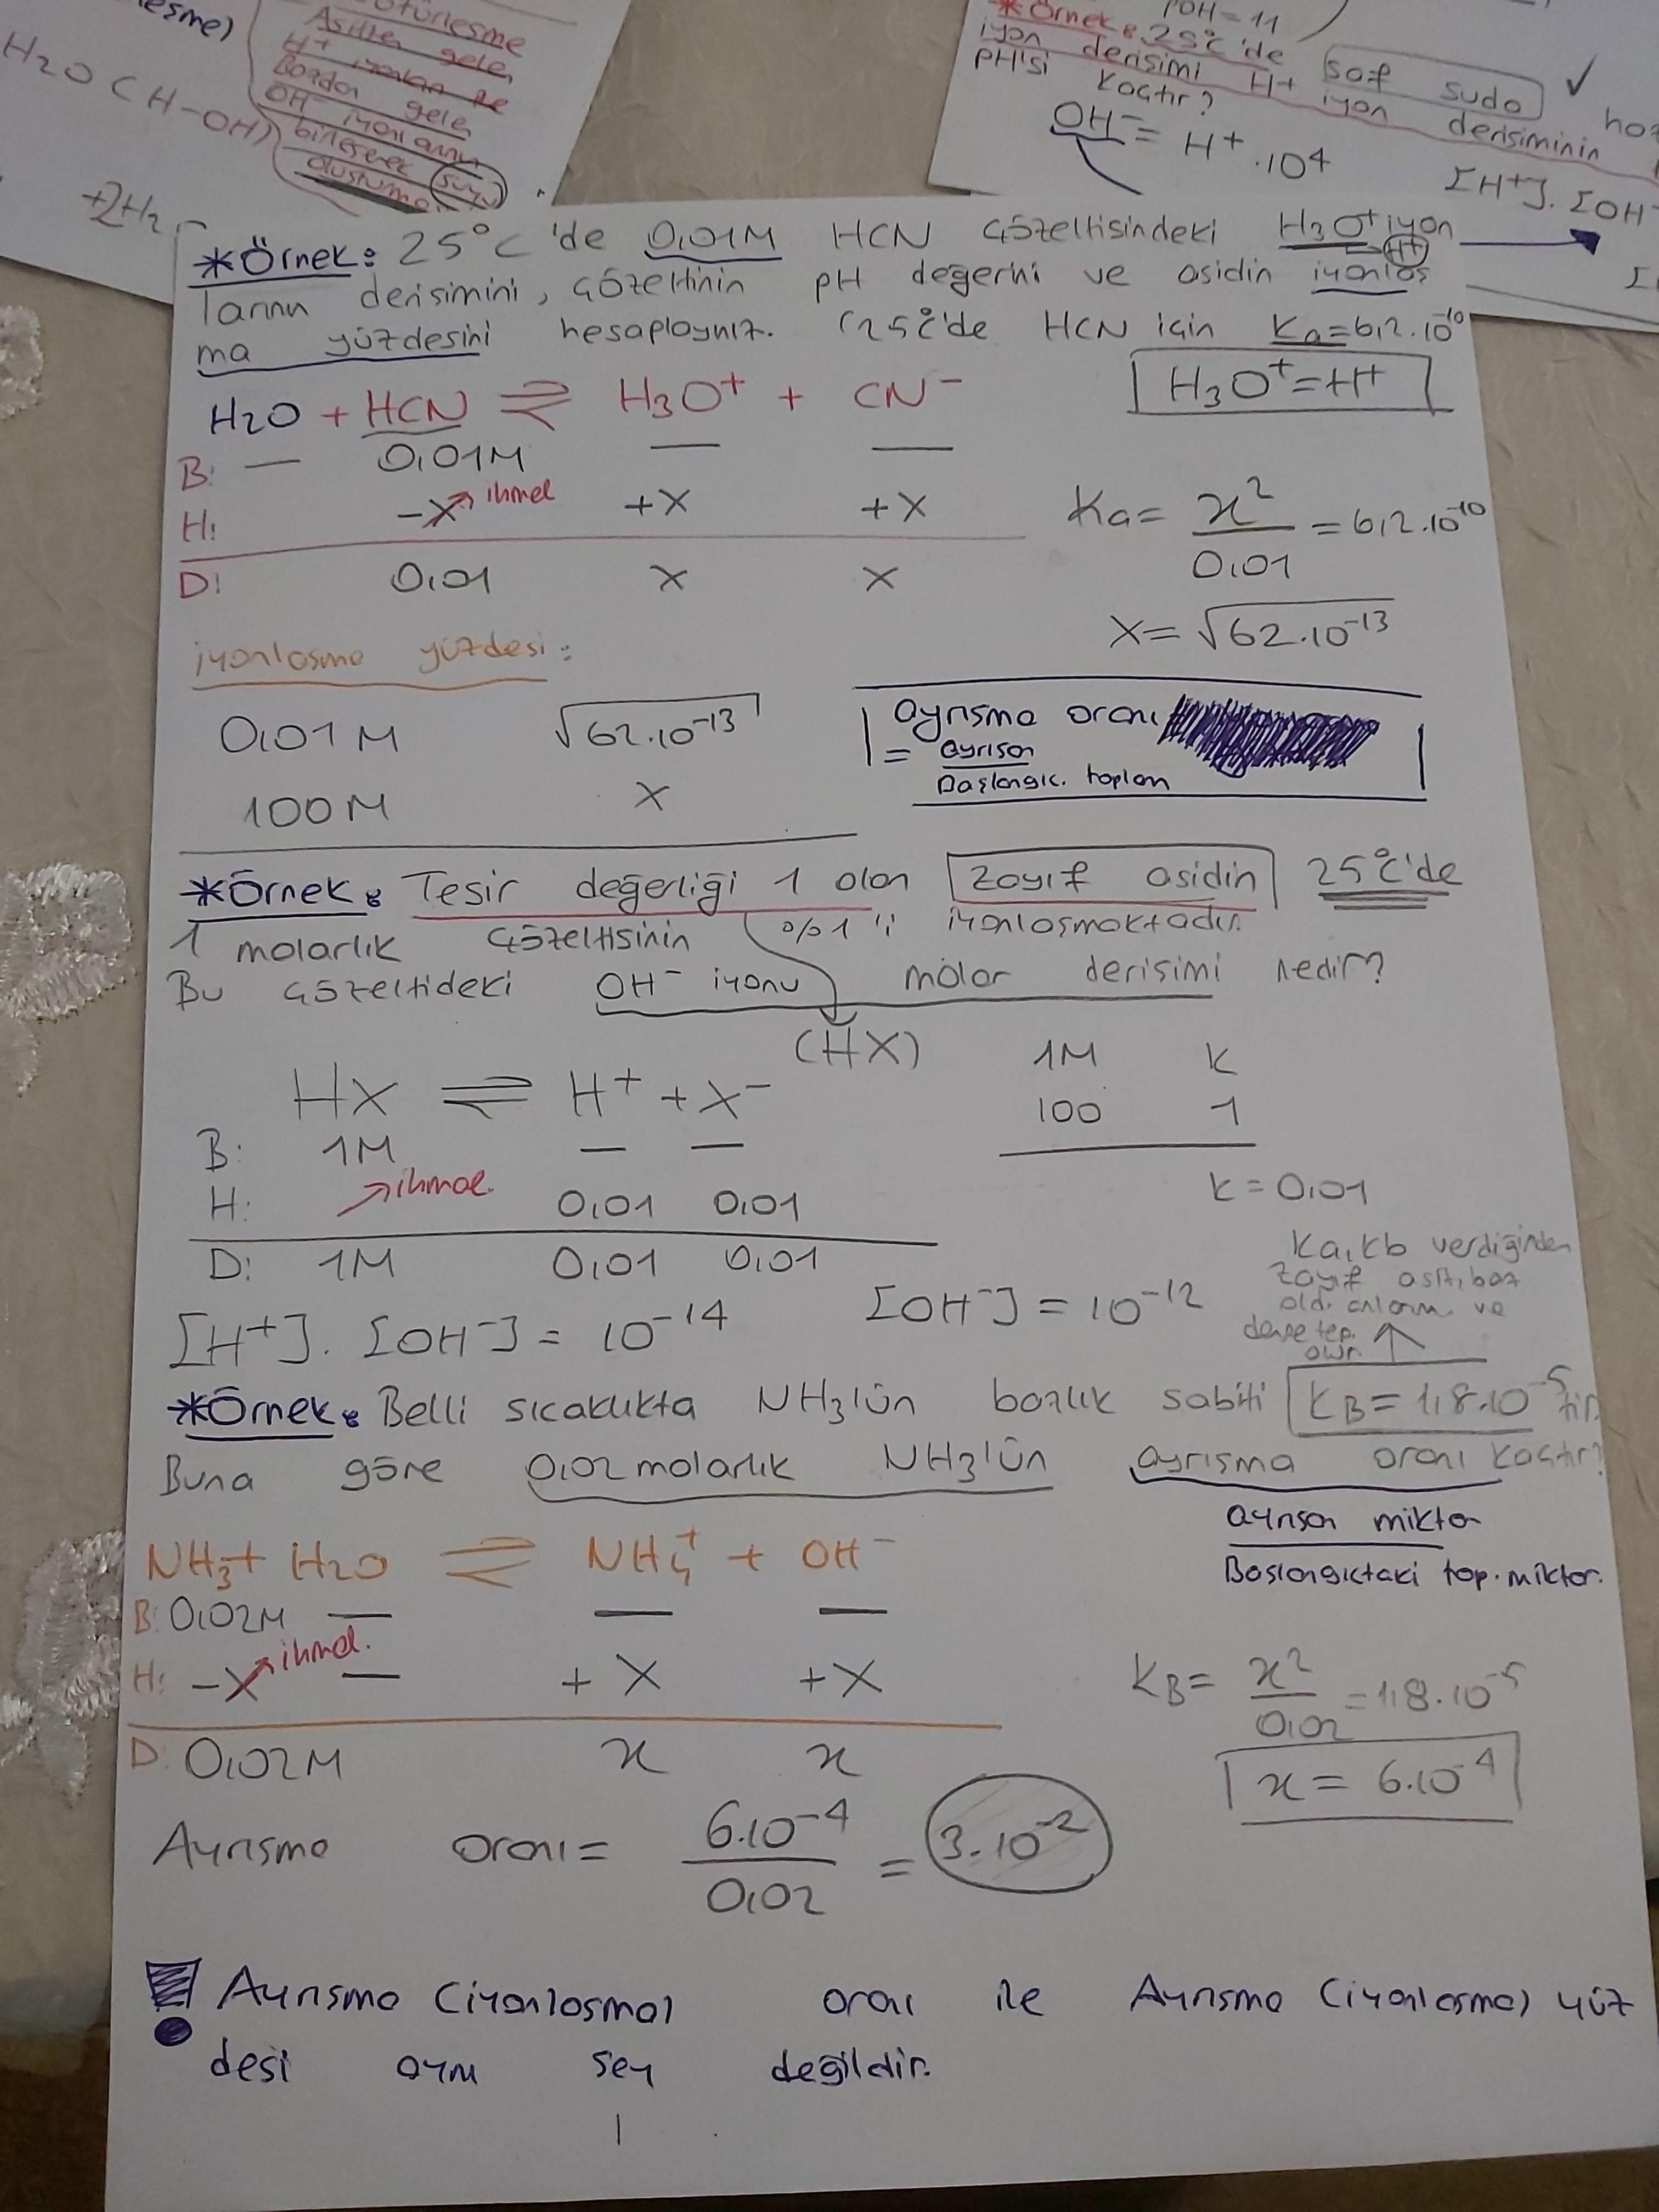 esme)
H2O (H-OH)
+2H2
ötürleşme
Asitten gelen
H+ iyonları ile
Bazdan gelen
OH- iyonlarının
birleşerek suyu
oluşturma
POH=11
*Örnek: 25°C'de saf suda
iyon derişimi H+ iyon derişiminin
pH'si kaçtır?
OH- = H+ . 10⁴
[H+]. [OH-
*Örnek: 25°C 'de 0,01M HCN çözeltisindeki H3O+ iyon
H+
larının derişimini, çözeltinin pH değerini ve asidin iyonlaş
ma yüzdesini hesaplayınız. (25°C'de HCN için Ka=6,2.10⁻¹⁰
H3O+=H+
H2O + HCN ⇌ H3O+ + CN-
B: — 0,01M — —
H: -X ihmel +X +X
Ka= x²/0,01 = 6,2.10⁻¹⁰
D: 0,01 X X
X= √62.10⁻¹³
iyonlaşma yüzdesi:
0,01M √62.10⁻¹³
100M X
ayrışma oranı
= ayrışan
Başlangıc. toplam
*Örnek: Tesir değerliği 1 olan zayıf asidin 25°C'de
1 molarlık çözeltisinin %1'i iyonlaşmaktadır.
Bu çözeltideki OH- iyonu molar derişimi nedir?
(HX)
1M K
100 1
K=0,01
HX ⇌ H+ + X-
B: 1M — —
H: ihmal. 0,01 0,01
D: 1M 0,01 0,01
[H+]. [OH-] = 10⁻¹⁴ [OH-] = 10⁻¹²
Ka,Kb verdiğinden
zayıf asit,baz
old. anlarım ve
denge tep.
olur.
*Örnek: Belli sıcaklıkta NH3'ün bazlık sabiti KB= 1,8.10⁻⁵ tir
Buna göre 0,02 molarlık NH3'ün ayrışma oranı kaçtır?
ayrışan miktar
Baslangıctaki top.miktar.
NH3+ H2O ⇌ NH4+ + OH-
B: 0,02M — — —
H: -X ihmal. — +X +X
D: 0,02M x x
KB= x²/0,02 = 1,8.10⁻⁵
x= 6.10⁻⁴
Ayrısma oranı= 6.10⁻⁴/0,02 = 3.10⁻²
! Ayrısma (iyonlasma) oranı ile Ayrısma (iyonlasma) yüz
desi aynı sey değildir.